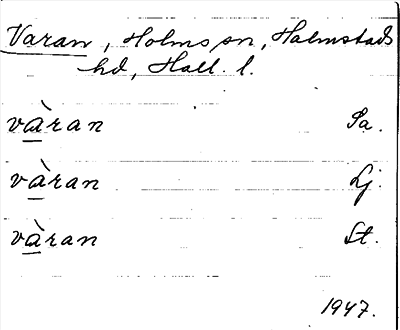 Varan, Holms sn, Halmstads
hd, Hall. l.
và̲ran Sa.
và̲ran Lj.
và̲ran St.
1947.